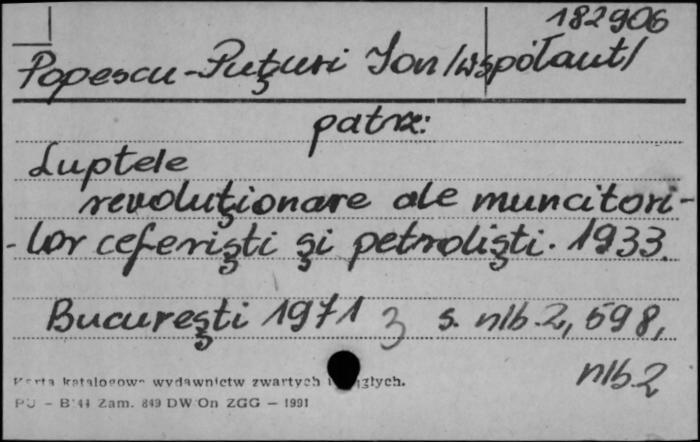 182906
Popescu-Puţuri Ion /współaut/
patrz:
Luptele
revoluţionare ale muncitori-
-lor ceferişti şi petrolişti. 1933.
Bucureşti 1971 3 s. nlb. 2, 598,
nlb. 2
Karta katalogowa wydawnictw zwartych i ciągłych.
PU – B 144 Zam. 849 DW On ZGG – 1991